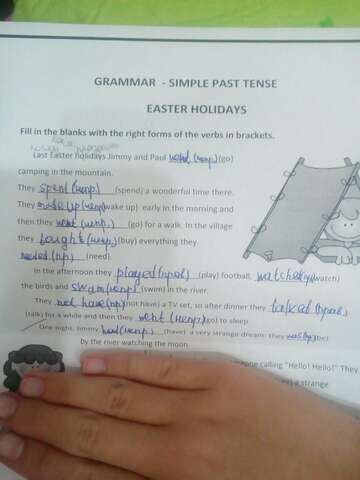 GRAMMAR - SIMPLE PAST TENSE
EASTER HOLIDAYS
Fill in the blanks with the right forms of the verbs in brackets.
Last Easter holidays Jimmy and Paul went (непр) (go)
camping in the mountain.
They spent (непр) (spend) a wonderful time there.
They (wake up) early in the morning and
then they went (непр.) (go) for a walk. In the village
they (непр.) (buy) everything they
(need).
In the afternoon they played (прав) (play) football, (watch)
the birds and swam (непр) (swim) in the river.
They not have (not have) a TV set, so after dinner they talked (прав)
(talk) for a while and then they went (непр) (go) to sleep
One night, Jimmy had (непр) (have) a very strange dream: they (be)
by the river watching the moon
calling "Hello! Hello!" They
a strange